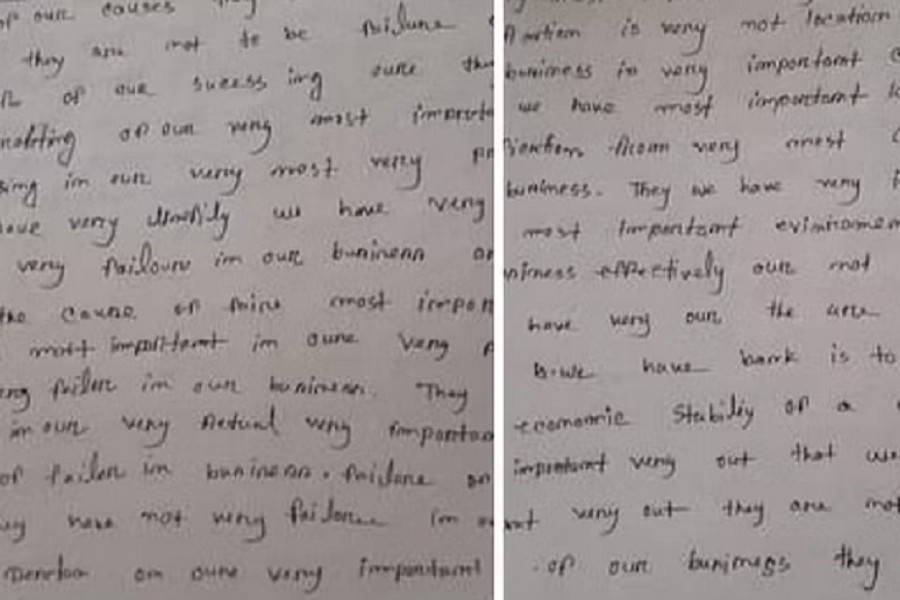 of our causes they
they are not to be failure
of our sucess ing oure the
of our very most importa
sing in our very most very pr
have very we have very
very failoure in our business or
the cause of fire most impor
most importtant in oure very
ing failer in our business. They
in our very Actual very importan
of failer in business. failure an
ey have not very failore in o
on oure very important
is very not location
business in very important
we have most important
from very most
business. They we have very
most Important evinromen
siness effectively our not
have very our the are
b.we have bank is to
economic Stability of a
important very out that we
nt very out they are not
of our business they